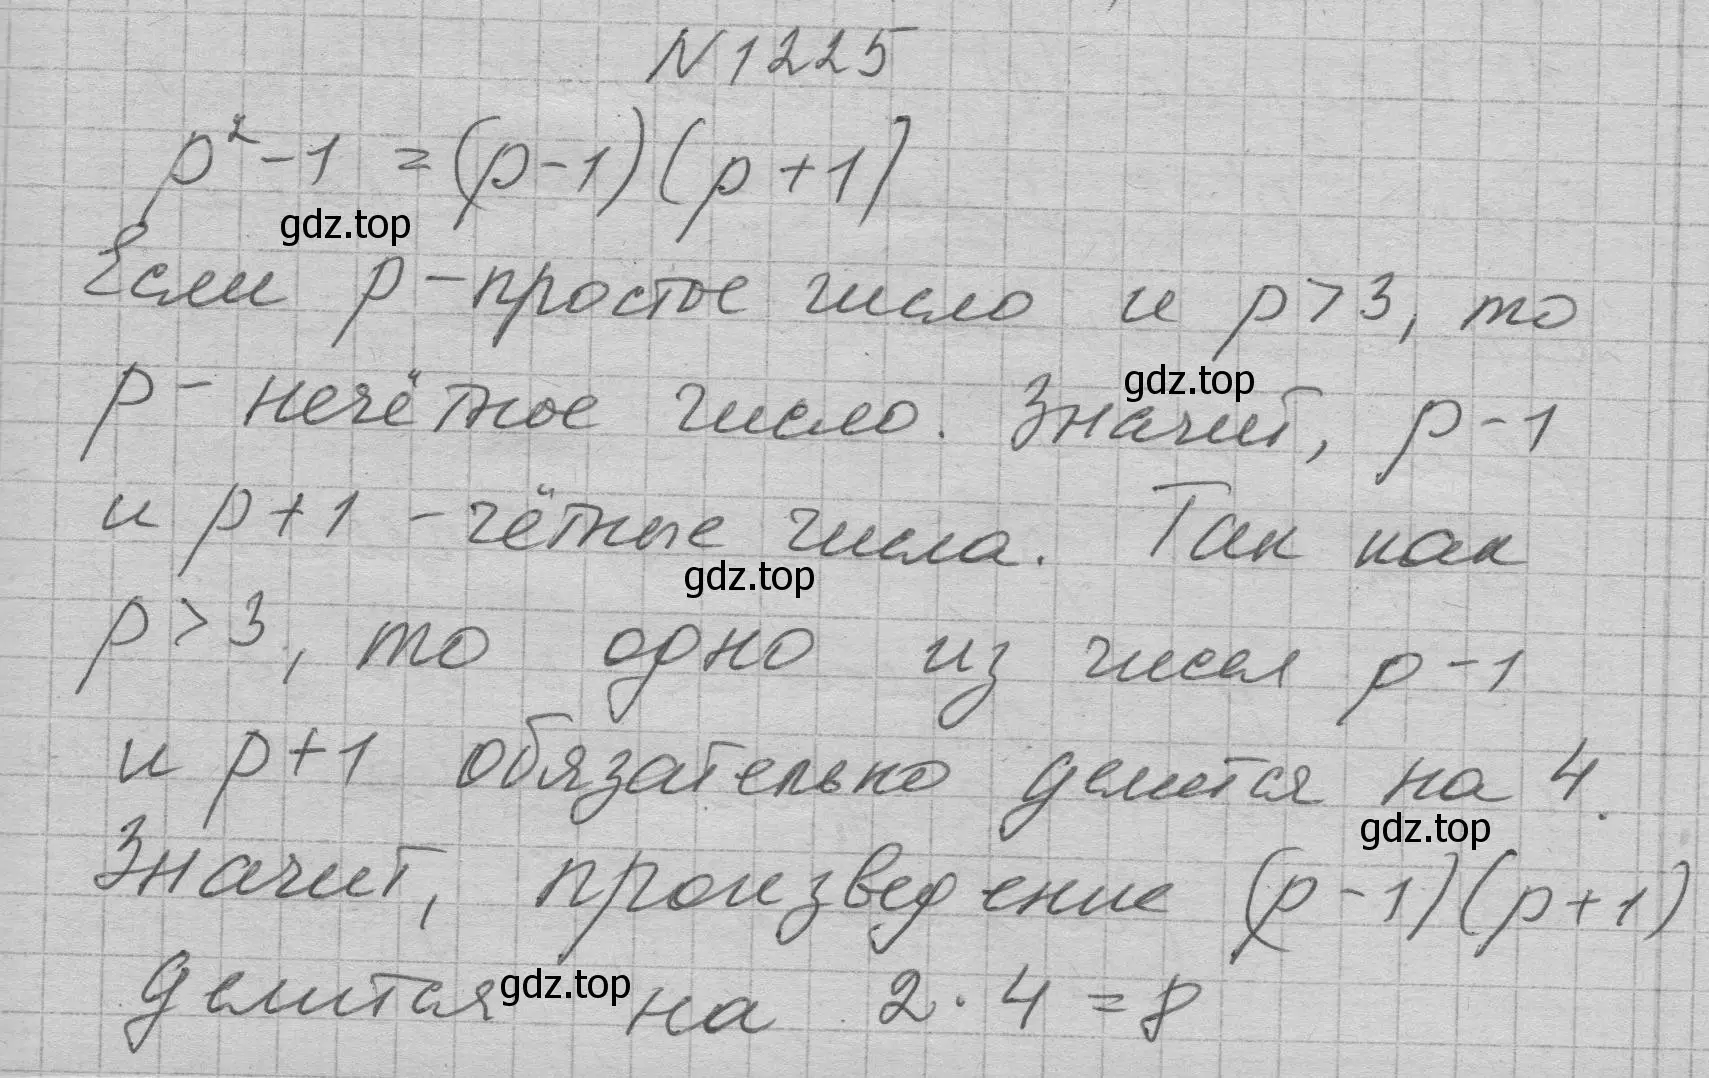 N 1225
p² - 1 = (p-1)(p+1)
gdz.top
Если p - простое число и p > 3, то
gdz.top
p - нечётное число. Значит, p - 1
и p + 1 - чётные числа. Так как
gdz.top
p > 3, то одно из чисел p - 1
и p + 1 обязательно делится на 4.
gdz.top
Значит, произведение (p-1)(p+1)
делится на 2 · 4 = 8
gdz.top